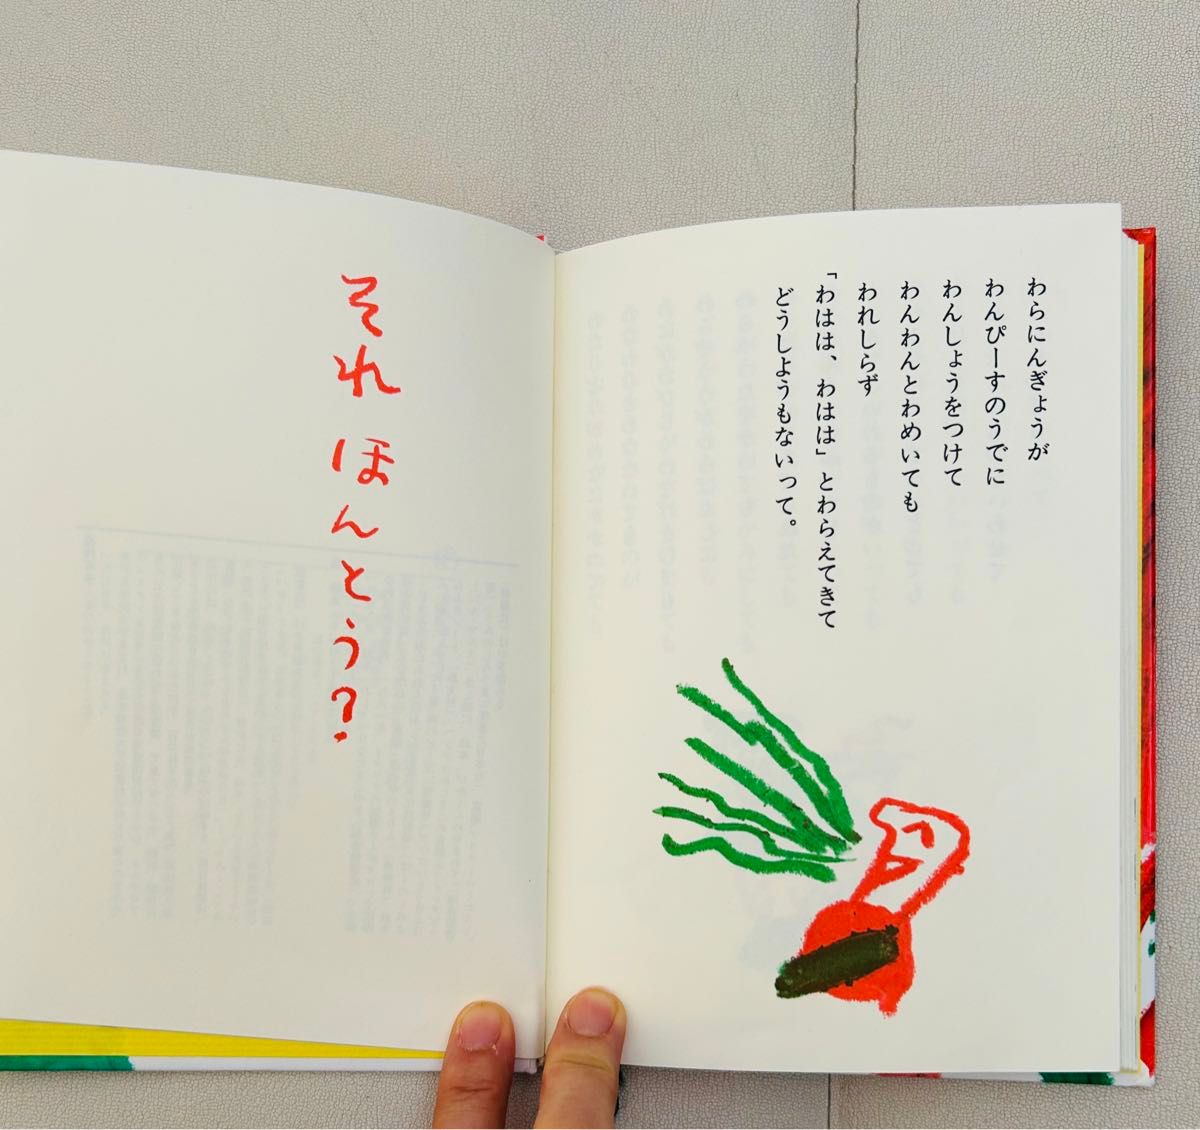 わらにんぎょうが
わんぴーすのうでに
わんしょうをつけて
わんわんとわめいても
われしらず
「わはは、わはは」とわらえてきて
どうしようもないって。
それ ほんとう?